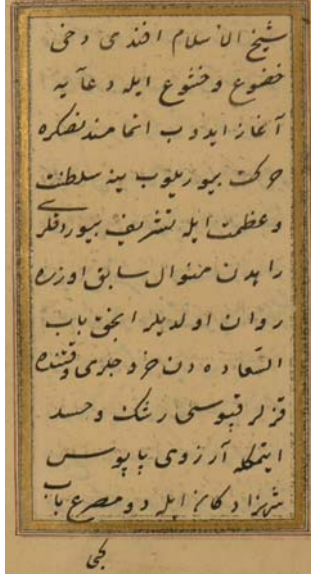 شيخ الاسلام افندى دخى
خضوع وخشوع ايله دعايه
آغاز ايدوب اتمامندنصكره
حركت بيوريلوب ينه سلطنت
وعظمت ايله تشريف بيوردقلرى
راهدن منوال سابق اوزره
روان اولديلر انجق باب
السعاده دن خروجلرى وقتنده
قزلر قپوسى رشك وحسد
ايتمكله آرزوى پابوس
شهزادكان ايله دو مصرع باب
كبى